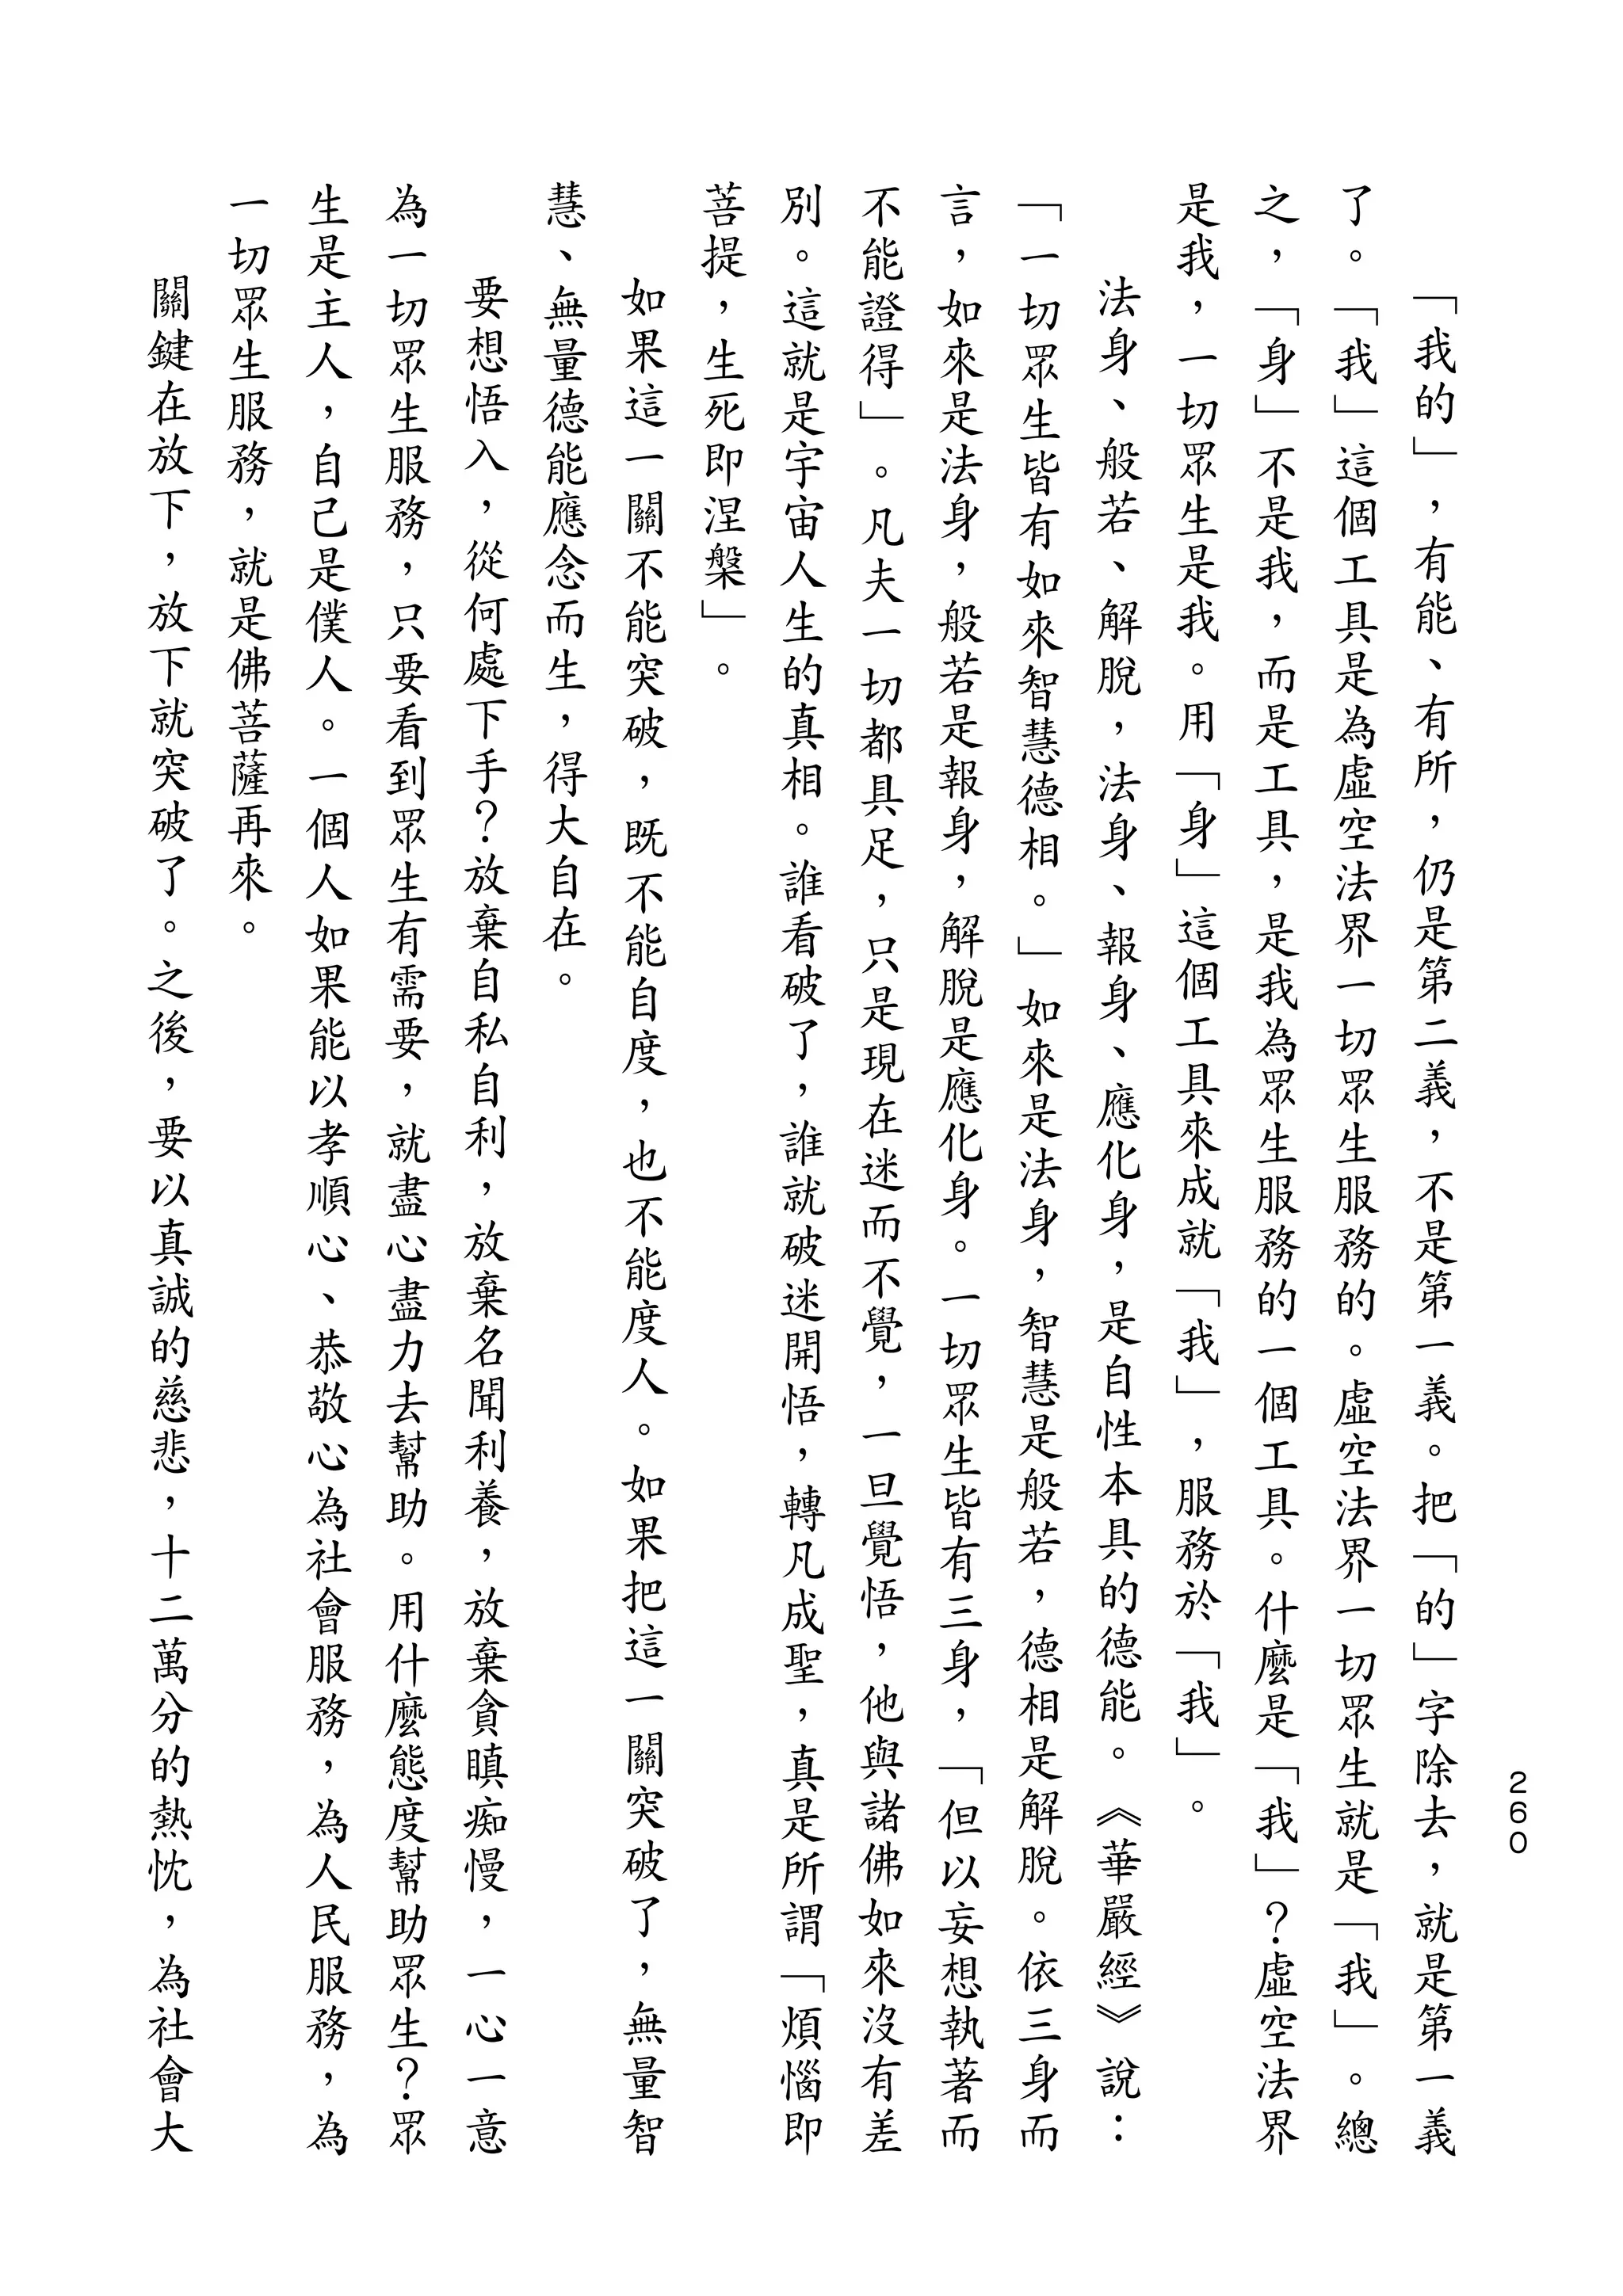 260
「我的」，有能、有所，仍是第二義，不是第一義。把「的」字除去，就是第一義
了。「我」這個工具是為虛空法界一切眾生服務的。虛空法界一切眾生就是「我」。總
之，「身」不是我，而是工具，是我為眾生服務的一個工具。什麼是「我」？虛空法界
是我，一切眾生是我。用「身」這個工具來成就「我」，服務於「我」。
法身、般若、解脫，法身、報身、應化身，是自性本具的德能。《華嚴經》說：
「一切眾生皆有如來智慧德相。」如來是法身，智慧是般若，德相是解脫。依三身而
言，如來是法身，般若是報身，解脫是應化身。一切眾生皆有三身，「但以妄想執著而
不能證得」。凡夫一切都具足，只是現在迷而不覺，一旦覺悟，他與諸佛如來沒有差
別。這就是宇宙人生的真相。誰看破了，誰就破迷開悟，轉凡成聖，真是所謂「煩惱即
菩提，生死即涅槃」。
如果這一關不能突破，既不能自度，也不能度人。如果把這一關突破了，無量智
慧、無量德能應念而生，得大自在。
要想悟入，從何處下手？放棄自私自利，放棄名聞利養，放棄貪瞋痴慢，一心一意
為一切眾生服務，只要看到眾生有需要，就盡心盡力去幫助。用什麼態度幫助眾生？眾
生是主人，自己是僕人。一個人如果能以孝順心、恭敬心為社會服務，為人民服務，為
一切眾生服務，就是佛菩薩再來。
關鍵在放下，放下就突破了。之後，要以真誠的慈悲，十二萬分的熱忱，為社會大